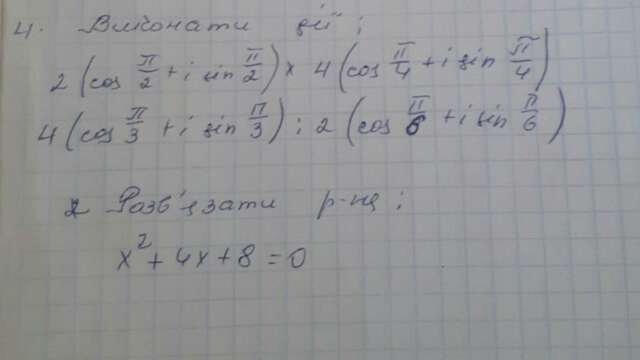 4. Виконати дії:
2 (cos π/2 + i sin π/2) × 4 (cos π/4 + i sin π/4)
4 (cos π/3 + i sin π/3) : 2 (cos π/6 + i sin π/6)
2 Розв'язати р-ня:
x² + 4x + 8 = 0